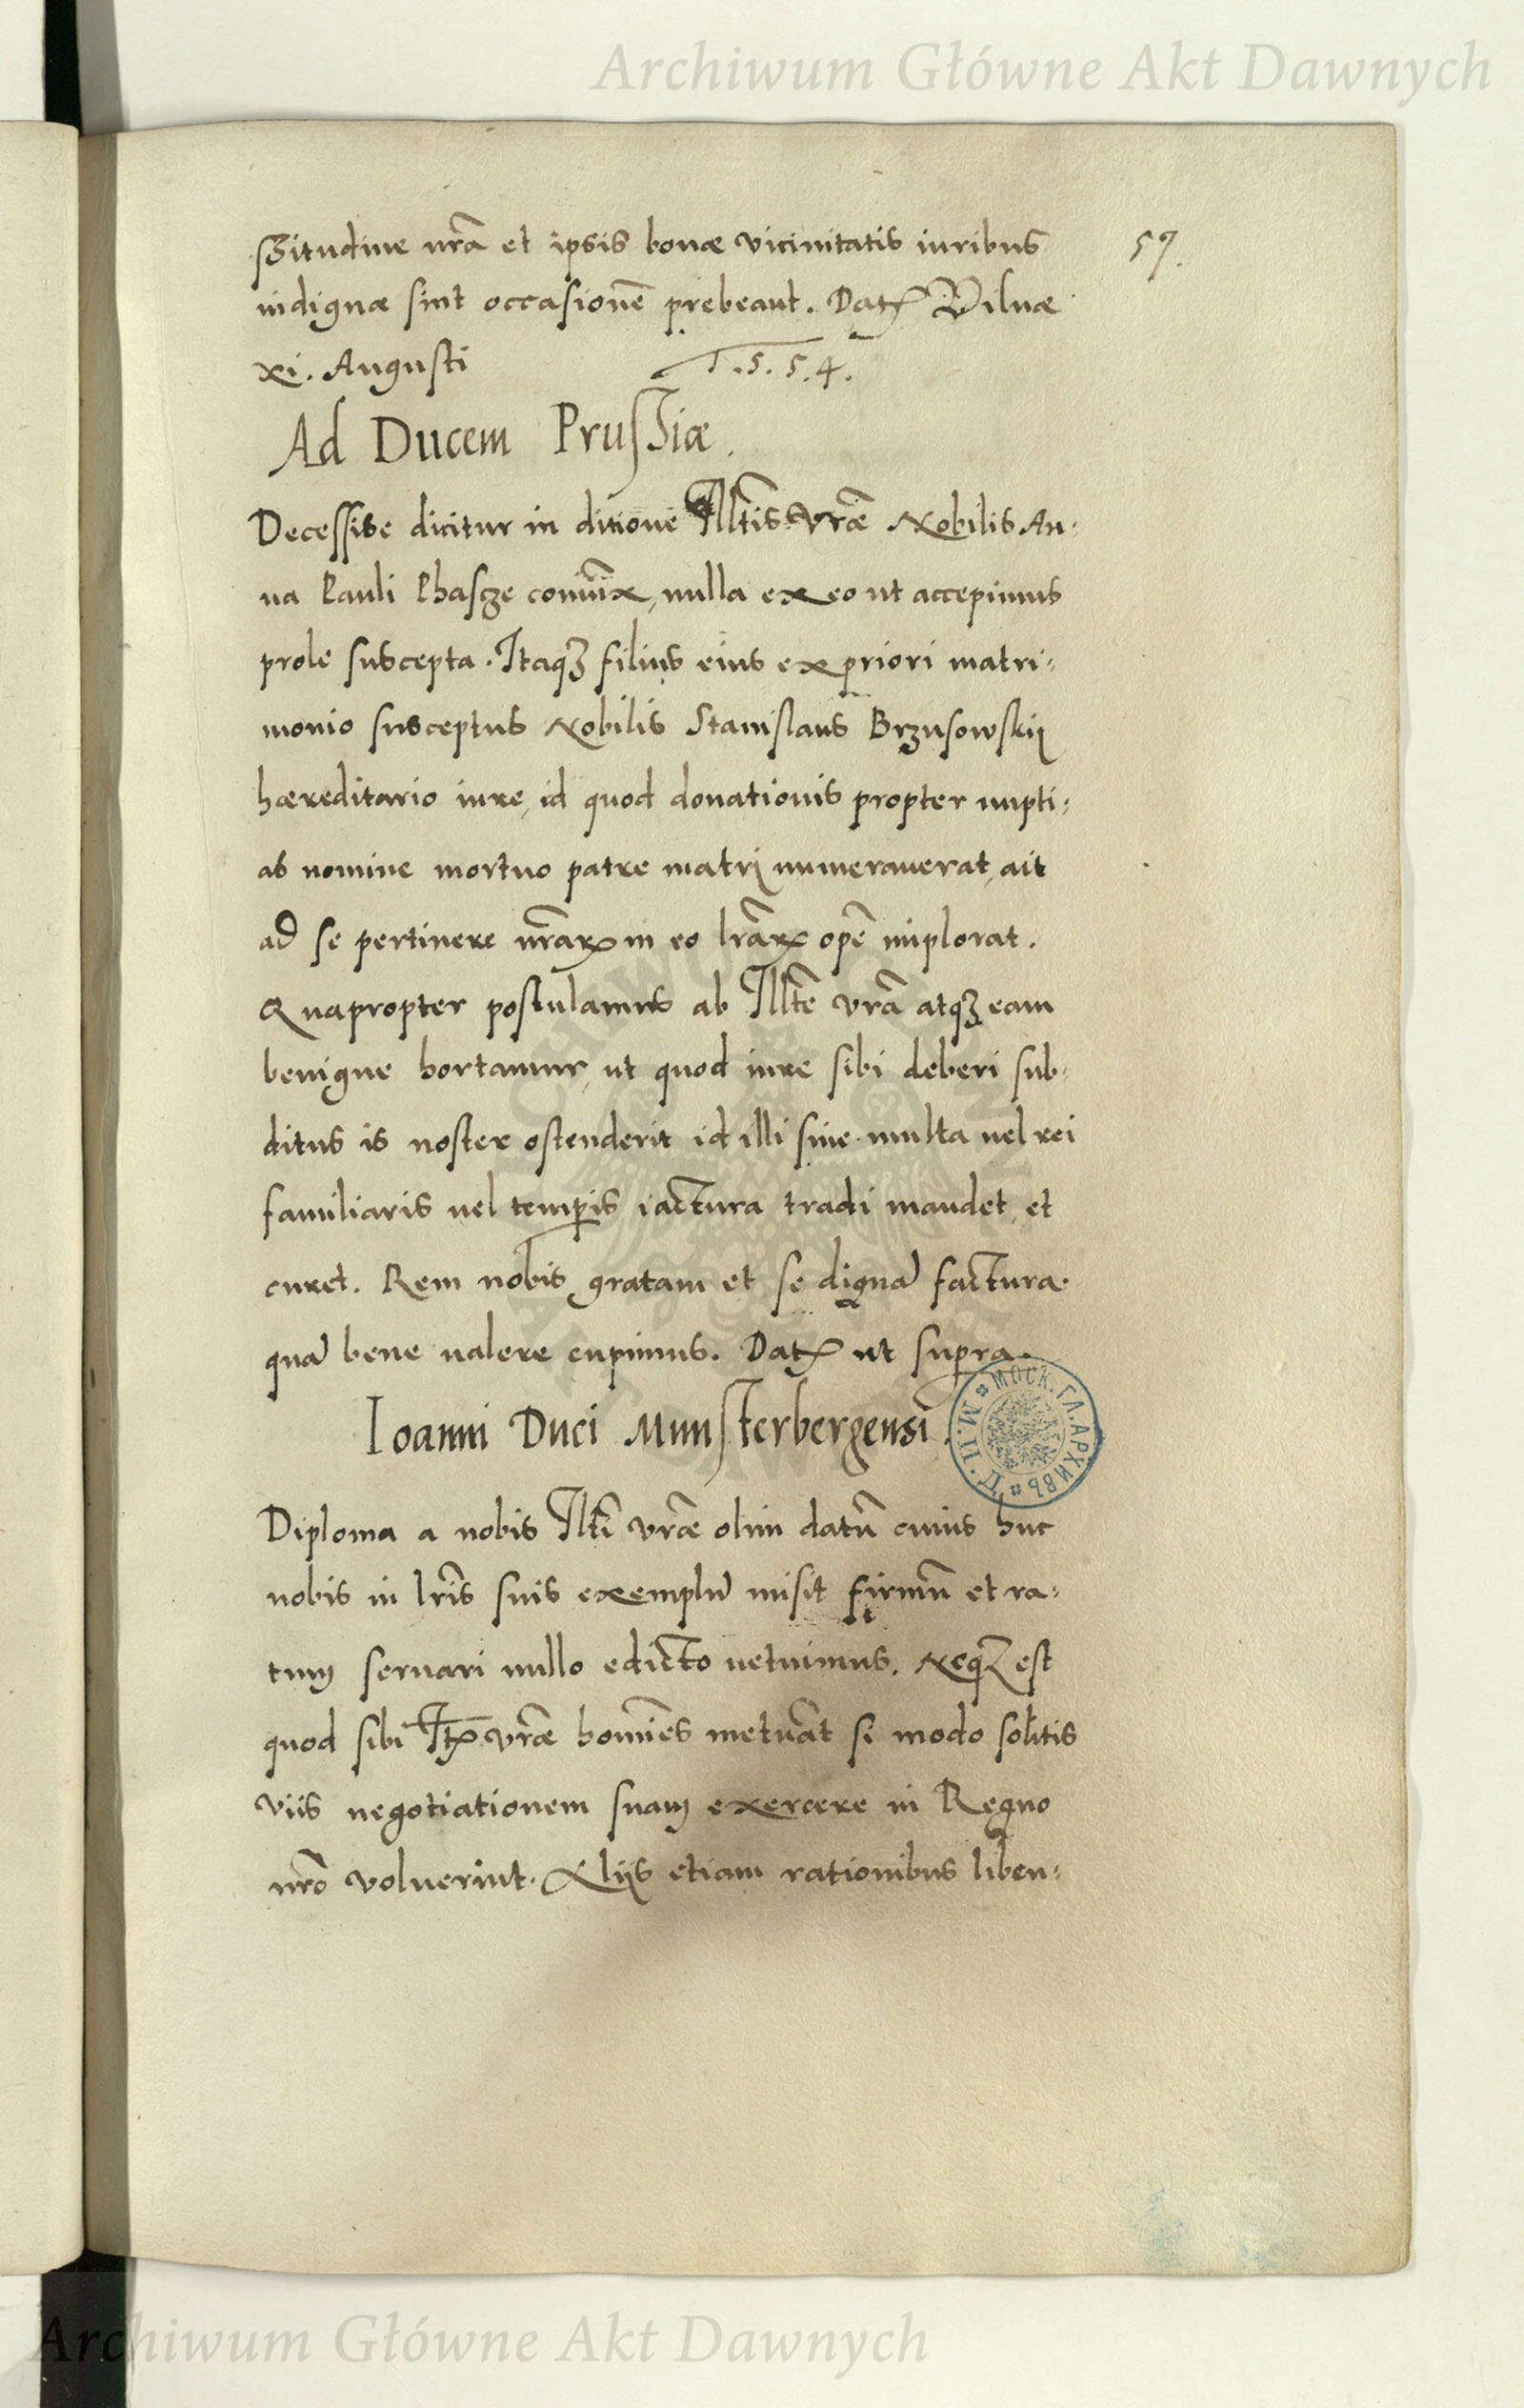 Archiwum Główne Akt Dawnych
57.
ssitudine nr̃a et ipsis bonæ vicinitatis iuribus
indignæ sint occasionẽ prebeant. Datꝝ Vilnæ
xi. Augusti 1.5.5.4.
Ad Ducem Prussiæ.
Decessisse dicitur in ditione Illt̃is vr̃æ Nobilis An-
na Pauli Phascze coniux̃, nulla ex eo ut accepimus
prole suscepta. Itaqꝫ filius eius ex priori matri-
monio susceptus Nobilis Stanislaus Brzusowskij
hæreditario iure, id quod donationis propter nupti-
as nomine mortuo patre matrj numerauerat, ait
ad se pertinere nr̃aꝝ in eo lr̃aꝝ opẽ implorat.
Quapropter postulamus ab Illt̃e vr̃a atqꝫ eam
benigne hortamur, ut quod iure sibi deberi sub-
ditus is noster ostenderit id illi sine multa uel rei
familiaris uel temꝑis iactura tradi mandet, et
curet. Rem nobis gratam et se dignã factura.
quã bene ualere cupimus. Datꝝ ut supra.
Ioanni Duci Munsterbergensi.
Diploma a nobis Illt̃i vr̃æ olim datũ cuius huc
nobis in lr̃is suis exemplũ misit firmũ et ra-
tum seruari nullo edicto uetuimus. Neqꝫ est
quod sibi Itꝝ vr̃æ homĩes metuãt si modo solitis
viis negotiationem suam exercere in Regno
nr̃o voluerint. Alijs etiam rationibus liben-
МОСК. ГЛ. АРХИВЪ
М. И. Д.
Archiwum Główne Akt Dawnych